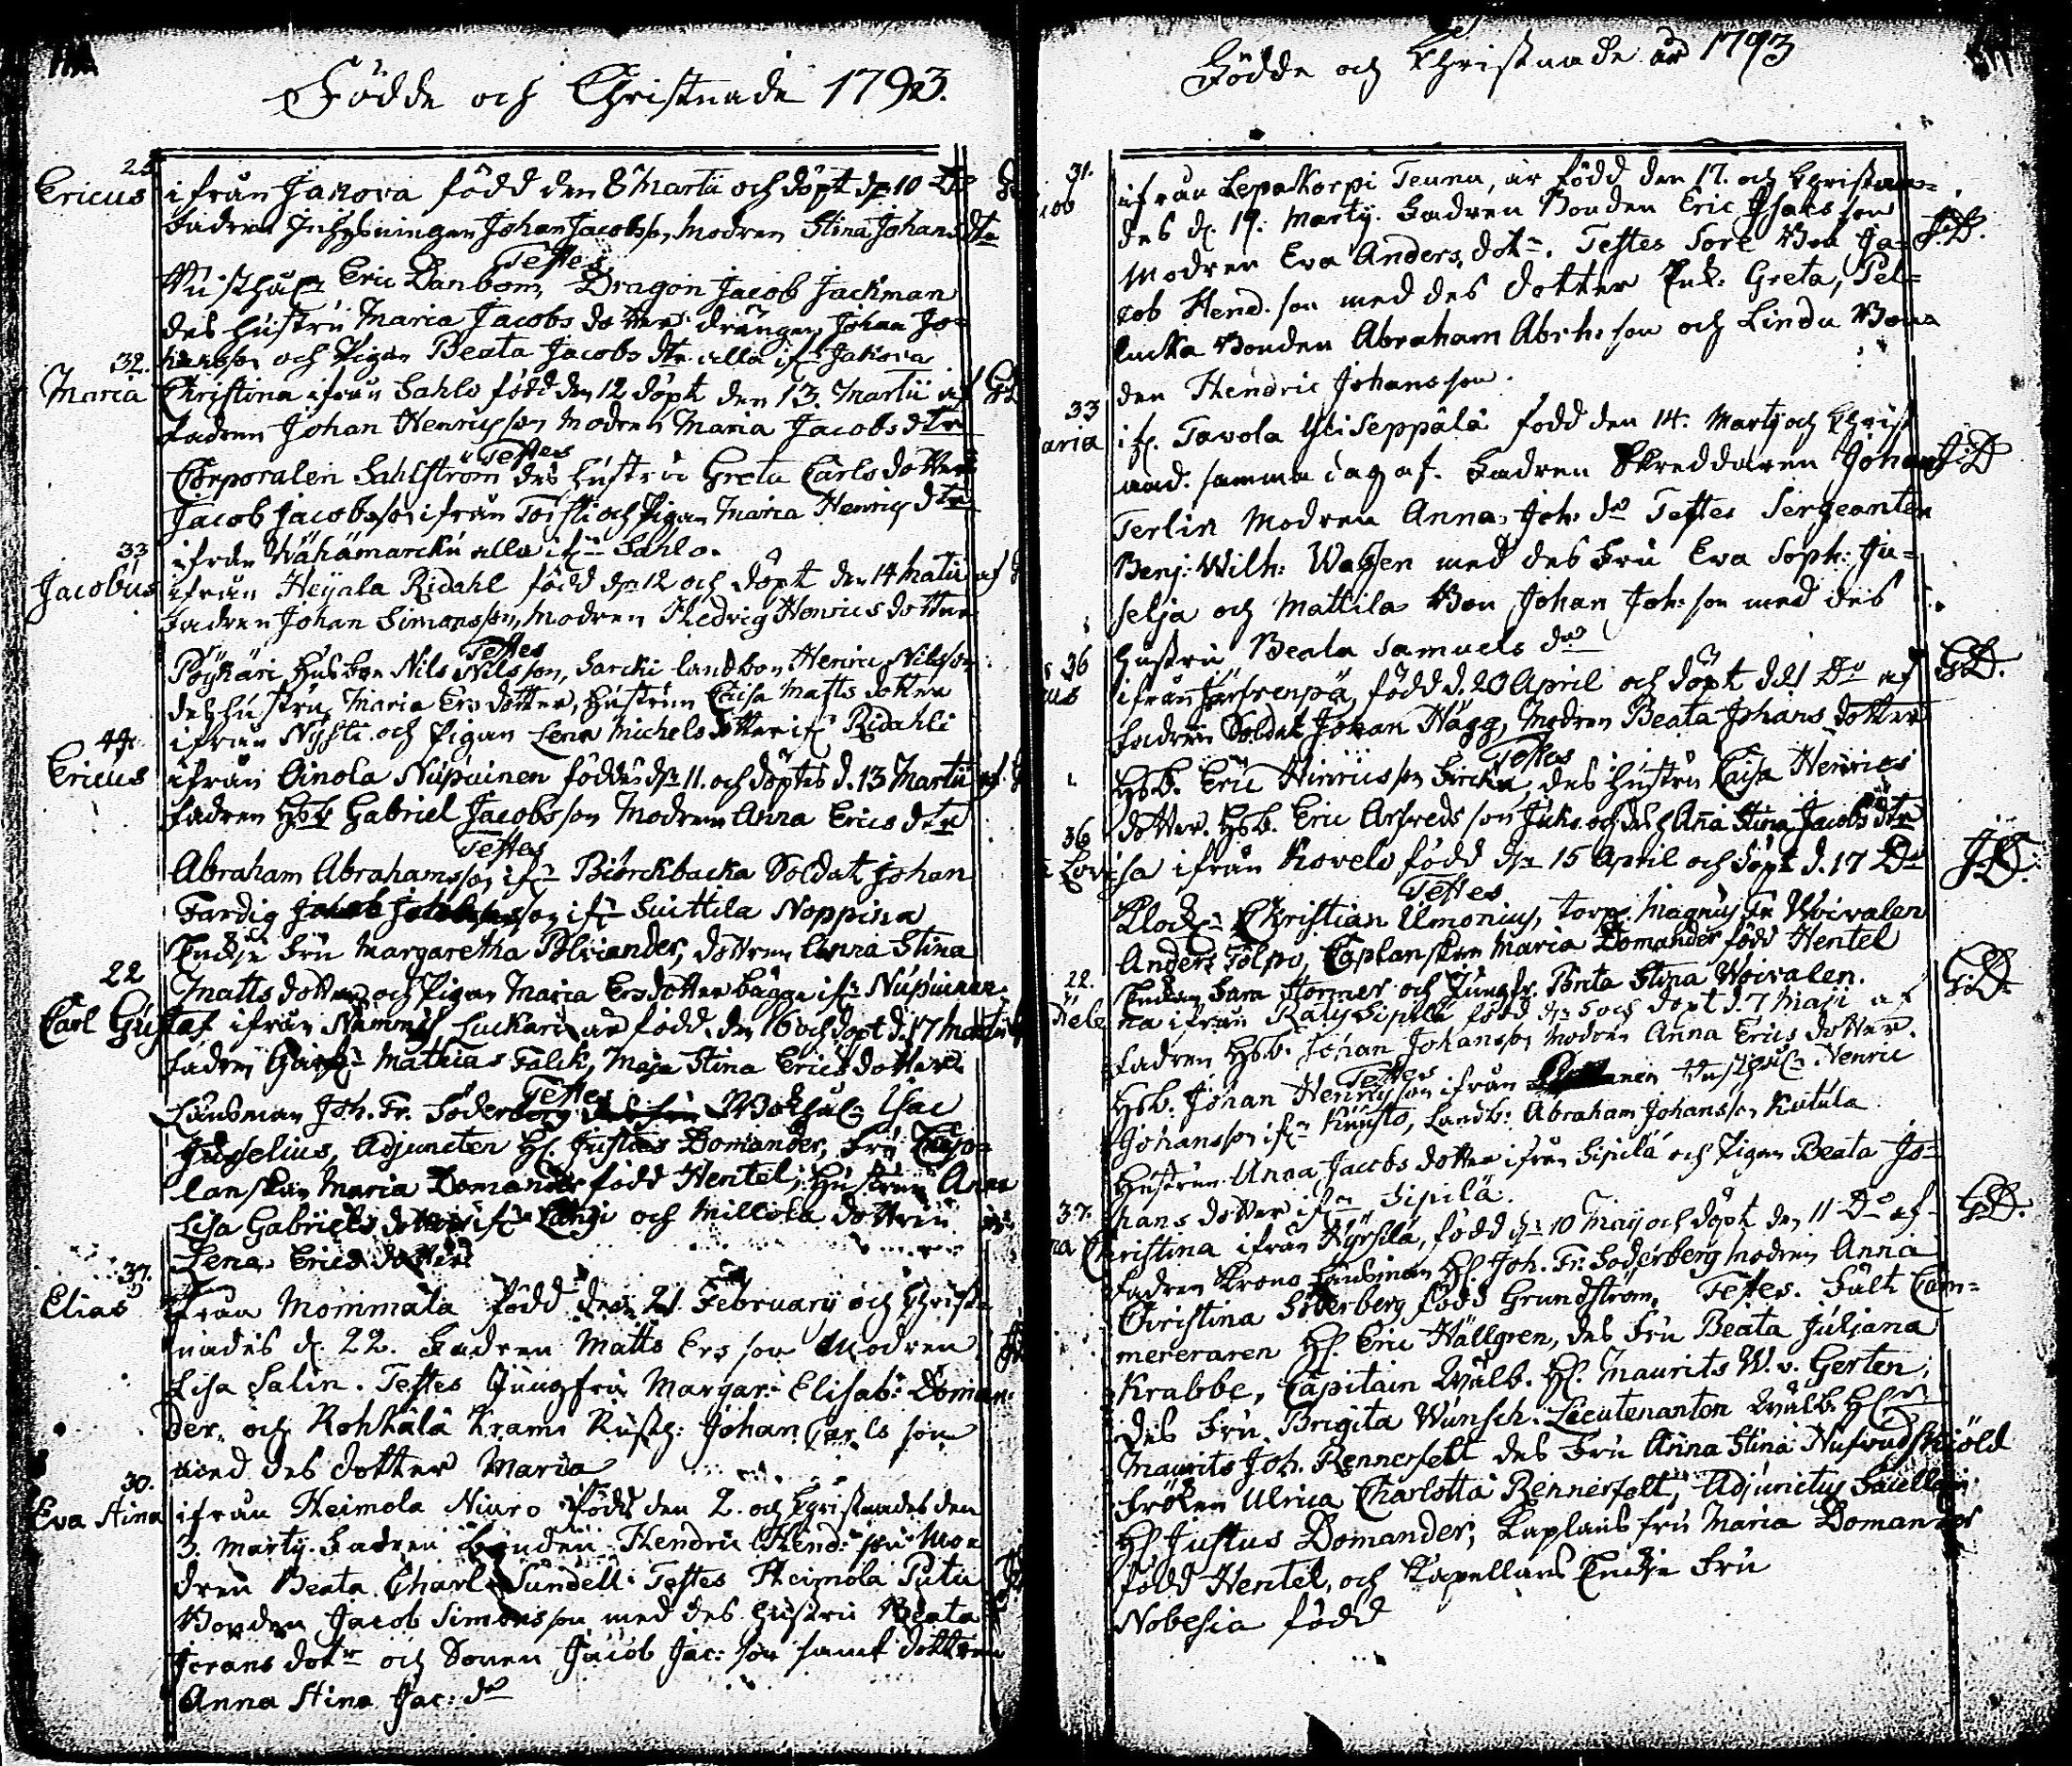 Födde och Christnade 1793.
Ericus ifrån Jakova född den 8 Martii och döpt d. 10 D:o
Fadren Inhysningen Johan Jacobss., Modren Stina Johansdtr
Testes
Eric Danbom, Dragon Jacob Jackman
des hustru Maria Jacobs dotter drängen Johan Jo-
och Pigan Beata Jacobs dtr alla ifr. Jakova
32.
Maria Christina ifrån Sahlo född den 12 döpt den 13. Martii af
Fadren Johan Henricsson Modren Maria Jacobsdtr
Testes
Corporalen Sahlström des hustru Greta Carls dotter
Jacob Jacobsson ifrån Torsti och Pigan Maria Henrics dtr
ifrån Wähämarcku alla ifr. Sahlo.
33
Jacobus ifrån Heynla Ridahl född d. 12 och döpt den 14 Matii af
Fadren Johan Simonsson, Modren Hedvig Henrics dotter
Testes
Pöykäri Husbon Nils Nilsson, Sarcki landbon Henric Nilsson
des hustru Maria Ers dotter, hustrun Caisa Matts dotter
ifrån Nysti och Pigan Lena Michels dotter ifr. Ridahli
44.
Ericus ifrån Oinola Nupuinen föddes d. 11. och döptes d. 13 Martii af
Fadren Hsb. Gabriel Jacobsson Modren Anna Erics dtr
Testes
Abraham Abrahamsson ifr. Biörckbacka Soldat Johan
Fardig ifr. Suittila Noppina
Enkje Fru Margaretha Polviander, dottren Anna Stina
Matts dotter och Pigan Maria Ersdotter bägge ifr. Nupuinen.
22
Carl Gustaf ifrån Nämmis Luckari är född den 16 och döpt d. 17 Martii
Fadren Mathias Falck, Maja Stina Erics dotter.
Testes
Länsman Joh. Fr. Söderberg Isac
Juselius, Adjuncten H. Justus Domander, Fru Cap-
lanskan Maria Domander född Hentel, Hustrun Anna
Lisa Gabriels dotter ifr. Längi och Millola dottren
Lena Erics dotter
37.
Elias ifrån Mommala född den 21. February och Christ-
nades d. 22. Fadren Matts Ers son Modren
Lisa Salin. Testes Jungfru Margar: Elisab: Doman-
der, och Rohkälä Krams Rusth: Johan Carls son
med des dotter Maria
30.
Eva Stina ifrån Heimola Niuro född den 2. och Christnades den
3. Marty. Fadren Bonden Hendric Hend: son Mo-
dren Beata Charl. Sundell. Testes Heimola Putu
Bonden Jacob Simonsson med des hustru Beata
Jörans dotr och Sonen Jacob Jac: son samt dottren
Anna Stina Jac: dr
Födde och Christnade år 1793
31.
ifrån Lepäkorpi Teunu, är född den 17. och Christna-
des d. 19. Marty. Fadren Bonden Eric Isacs son
Modren Eva Anders dotr. Testes Sore Bon Ja-
cob Hend. son med des dotter Greta, Pel-
lucka Bonden Abraham Abrh: son och Lindu Bon-
den Hendric Johansson.
33
aria ifr. Tavola Yliseppälä född den 14. Marty och Christ-
nad. samma dag af. Fadren Skreddaren Johan
Terlin Modren Anna Joh: dr Testes Sergeanten
Benj: Wilh: med des Fru Eva Soph: Ju-
selja och Mattila Bon Johan Joh: son med des
hustru Beata Samuels dr
36
cus ifrån född d. 20 April och döpt d. 21 D:o af
Fadren Soldat Johan Hägg, Modren Beata Johans dotter
Testes
Hsb. Eric Hinricsson des hustru Caisa Henrics
dotter. Hsb. Eric Arfreds son och des h. Anna Stina Jacobs dtr
36
Lovisa ifrån Kovelo född d. 15 April och döpt d. 17 D:o
Testes
Klock. Christian Ulmonius, torp. Magnus Fr. Woivalen
Anders Tolpo, Caplanskan Maria Domander född Hentel
Enkan Sara Stormer och Jungfr. Brita Stina Woivalen.
22.
Helena ifrån Räty Sipilä född d. 5 och döpt d. 7 Maji af
Fadren Hsb. Johan Johansson Modren Anna Erics dotter.
Testes
Hsb: Johan Henricsson ifrån Henric
Johansson ifr. Kunsto, Landb: Abraham Johansson Kutula
Hustrun Anna Jacobs dotter ifrån Sipilä och Pigan Beata Jo-
hans dotter ifrån Sipilä.
37.
na Christina ifrån Hyrsilä, född d. 10 May och döpt den 11 D:o af
Fadren Krono Länsman H. Joh. Fr. Söderberg Modren Anna
Christina Söderberg född Grundström. Testes. Fält Cam-
mereraren H. Eric Hällgren, des Fru Beata Juliana
Krabbe, Capitain Wälb. H. Maurits W. v. Gerten,
des Fru Brigita Wunsch. Lieutenanten Wälb. H.
Maurits Joh. Rennerfelt des Fru Anna Stina
Fröken Ulrica Charlotta Rennerfelt, Adjunctus
H. Justus Domander, Kaplans fru Maria Domander
född Hentel, och Kapellans Enkje Fru
Nobesia född